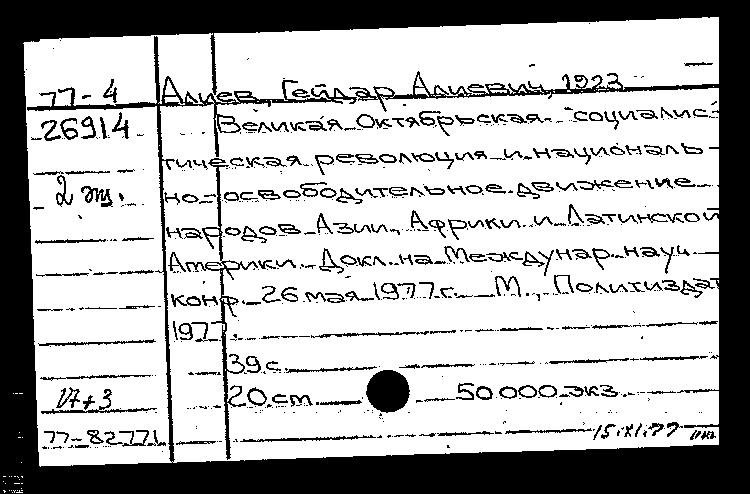 77-4 Алиев, Гейдар Алиевич, 1923
26914 Великая Октябрьская социалис-
тическая революция и националь-
2 эк. но-освободительное движение
народов Азии, Африки и Латинской
Америки. Докл. на Междунар. науч.
конф. 26 мая 1977 г. М., Политиздат
1977.
39 с.
20 см 50 000 экз.
VA+3
77-82771 15.XI.77